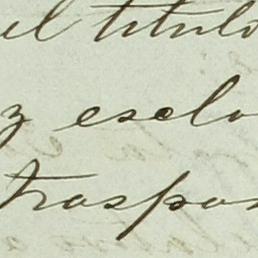 el titulo
z escla
traspas